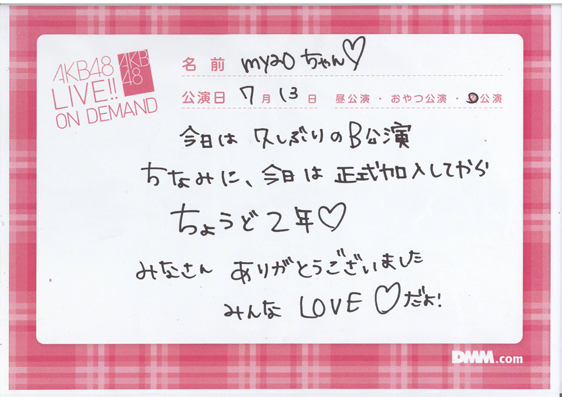 AKB48
LIVE!!
ON DEMAND
AKB
48
名前 myaoちゃん♡
公演日 7月13日 昼公演・おやつ公演・夜公演
今日は久しぶりのB公演
ちなみに、今日は正式加入してから
ちょうど2年♡
みなさん ありがとうございました
みんな LOVE ♡だよ!
DMM.com